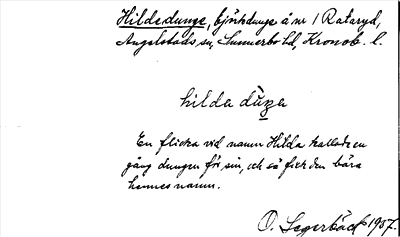 Hildedunge, björkdunge å nr 1 Rataryd,
Angelstads sn, Sunnerbo hd, Kronob. l.
hilda duŋa
En flicka vid namn Hilda kallade en
gång dungen för sin, och så fick den bära
hennes namn.
O. Lagerbäck 1937.